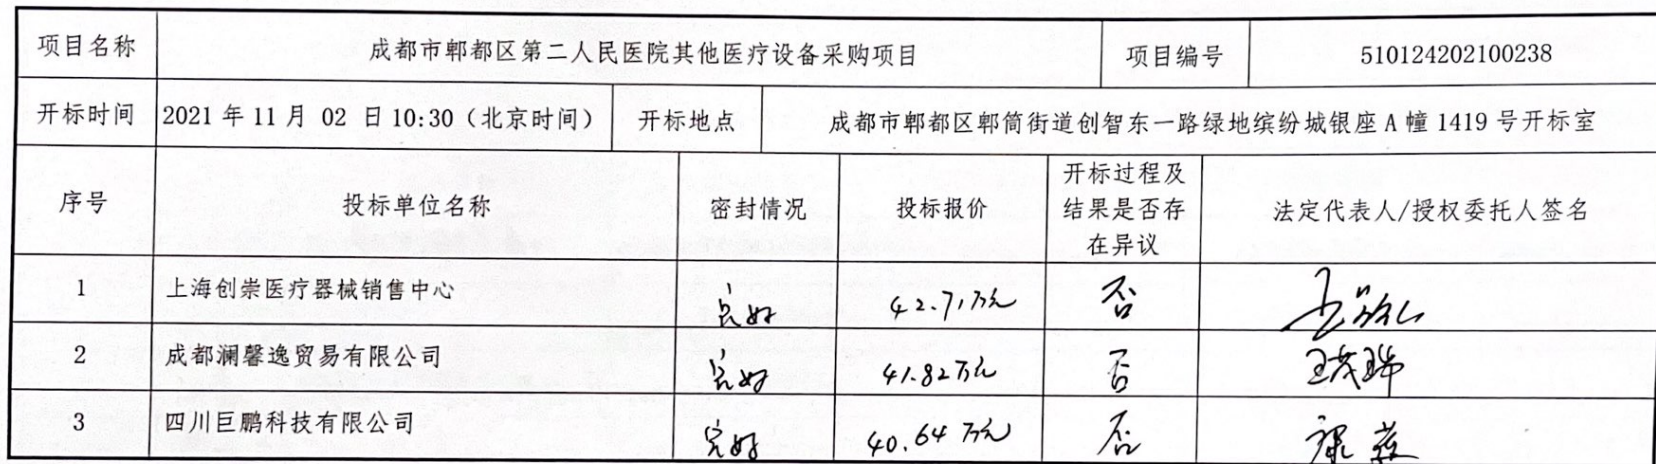 项目名称 成都市郫都区第二人民医院其他医疗设备采购项目 项目编号 510124202100238
开标时间 2021年11月 02 日10:30（北京时间） 开标地点 成都市郫都区郫筒街道创智东一路绿地缤纷城银座A幢1419号开标室
序号 投标单位名称 密封情况 投标报价 开标过程及
结果是否存
在异议 法定代表人/授权委托人签名
1 上海创崇医疗器械销售中心 完好 42.71万元 否
2 成都澜馨逸贸易有限公司 完好 41.82万元 否 王茂瑞
3 四川巨鹏科技有限公司 完好 40.64万元 否